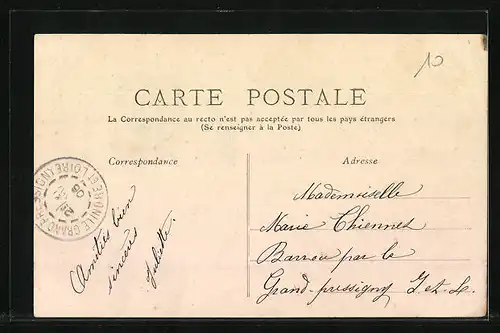 10
CARTE POSTALE
La Correspondance au recto n'est pas acceptée par tous les pays étrangers
(Se renseigner à la Poste)
Correspondance
Adresse
Amitiés bien
sincères
Juliette.
Mademoiselle
Marie Chiennet
Barrou par le
Grand-pressigny I.et.L.
LE GRAND
ET LOIRE